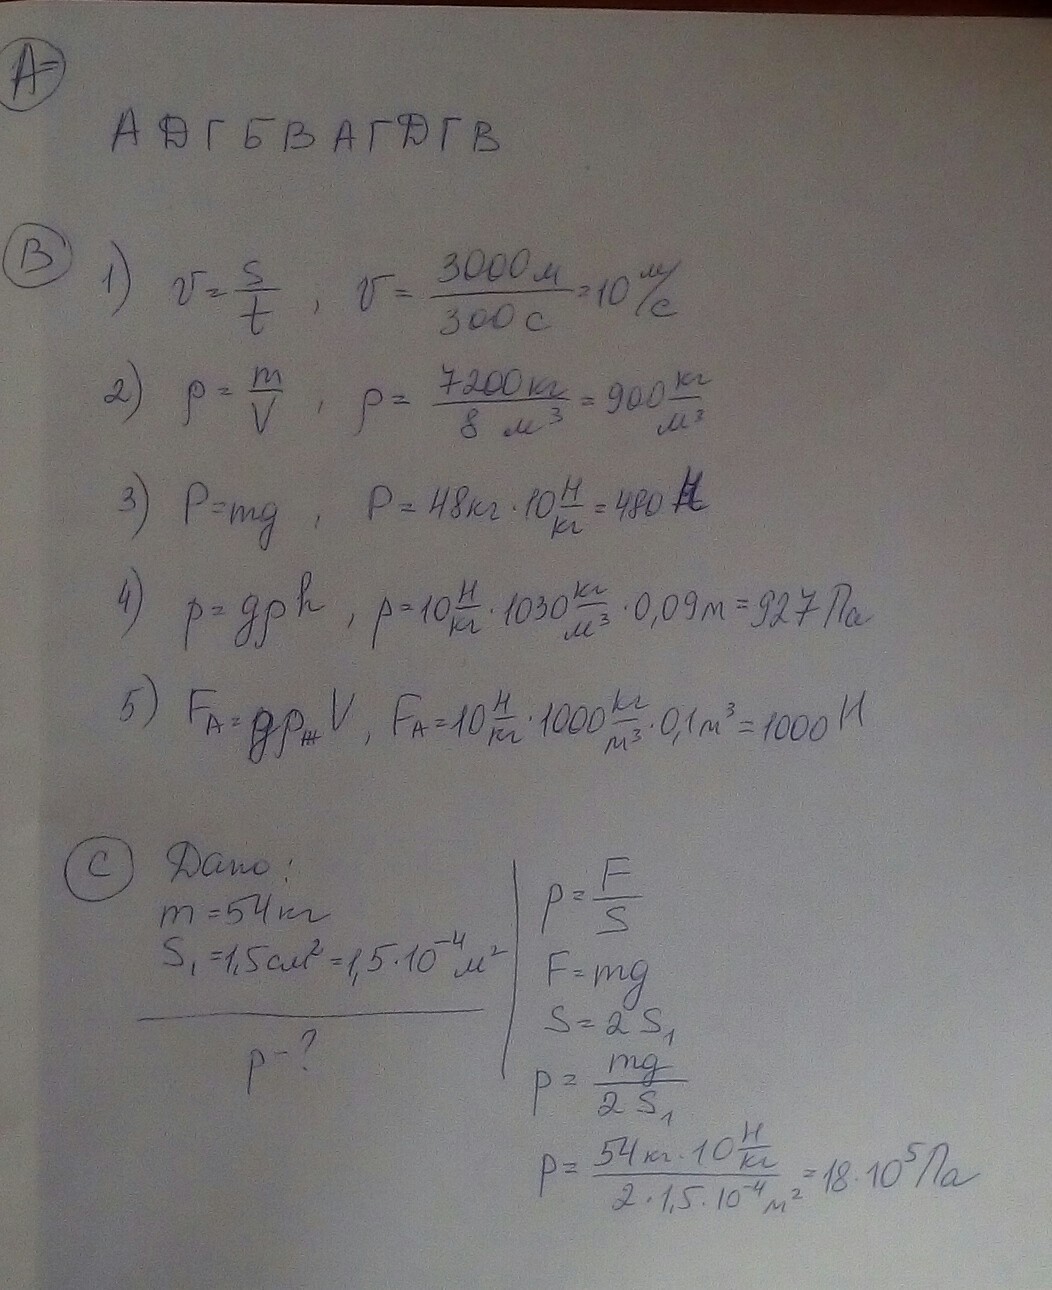 A=
А Д Г Б В А Г Д Г В
B
1) v = s/t , v = 3000м/300с = 10 м/с
2) ρ = m/V , ρ = 7200кг/8 м³ = 900 кг/м³
3) P=mg , P = 48кг · 10 Н/кг = 480 Н
4) p = gρh , p = 10 Н/кг · 1030 кг/м³ · 0,09м = 927 Па
5) Fᴀ = gρжV , Fᴀ = 10 Н/кг · 1000 кг/м³ · 0,1м³ = 1000 Н
C Дано:
m = 54 кг
S₁ = 1,5см² = 1,5·10⁻⁴м²
p - ?
p = F/S
F = mg
S = 2 S₁
p = mg/2 S₁
p = 54кг·10 Н/кг / 2·1,5·10⁻⁴м² = 18·10⁵Па